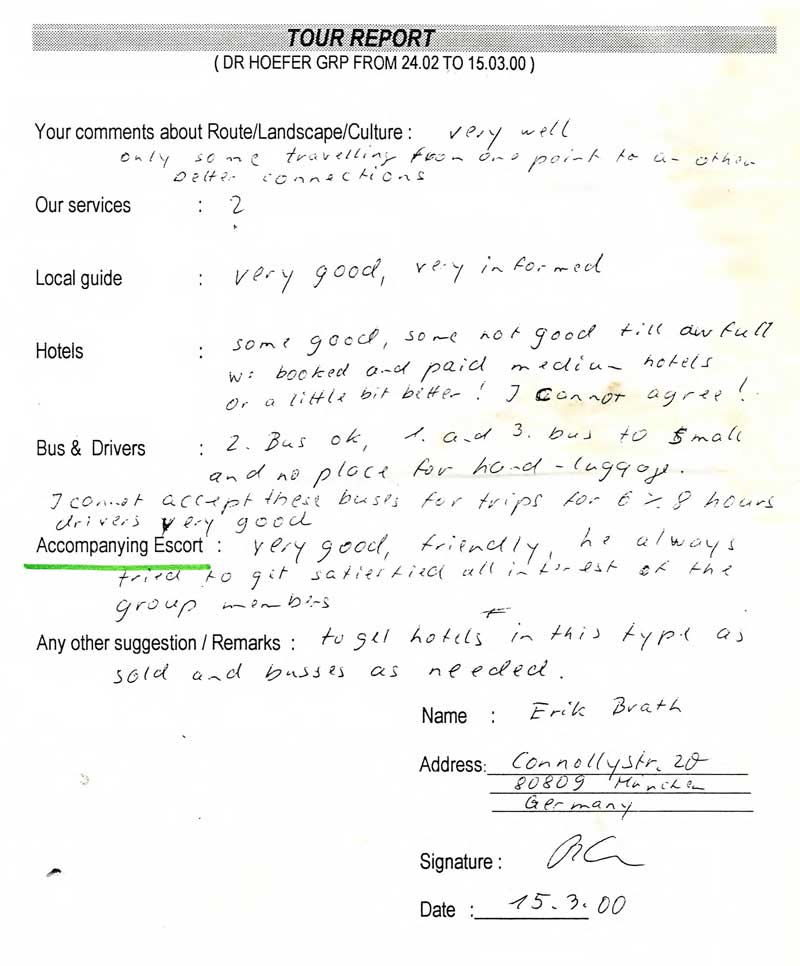 TOUR REPORT
( DR HOEFER GRP FROM 24.02 TO 15.03.00 )
Your comments about Route/Landscape/Culture : very well
only some travelling from one point to an other
better connections
Our services : 2
Local guide : very good, very informed
Hotels : some good, some not good till awfull
we booked and paid medium hotels
or a little bit better! I cannot agree!
Bus & Drivers : 2. Bus ok, 1. and 3. bus to small
and no place for hand-luggage.
I cannot accept these buses for trips for 6 % 8 hours
drivers very good
Accompanying Escort : very good, friendly, he always
tried to get all interest of the
group members
Any other suggestion / Remarks : to get hotels in this type as
sold and busses as needed.
Name : Erik Brath
Address: Connollystr. 20
80809 München
Germany
Signature :
Date : 15.3.00